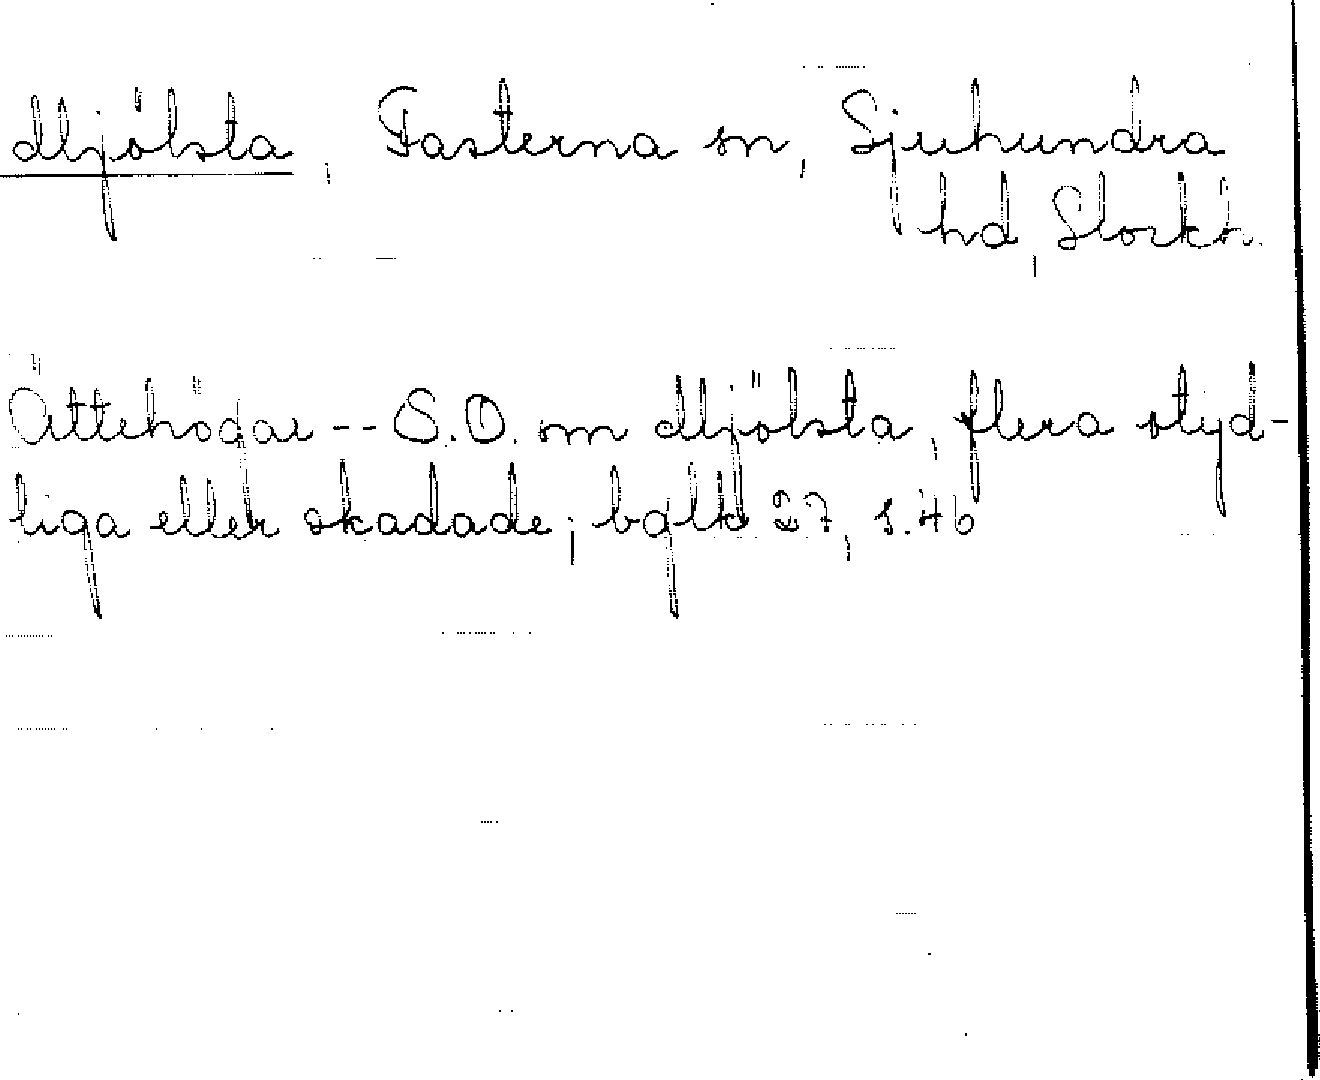 Mjölsta, Fasterna sn, Sjuhundra
hd, Stockh.
Ättehögar -- S.O. om Mjölsta, flera otyd-
liga eller skadade; bglk 27, s.46